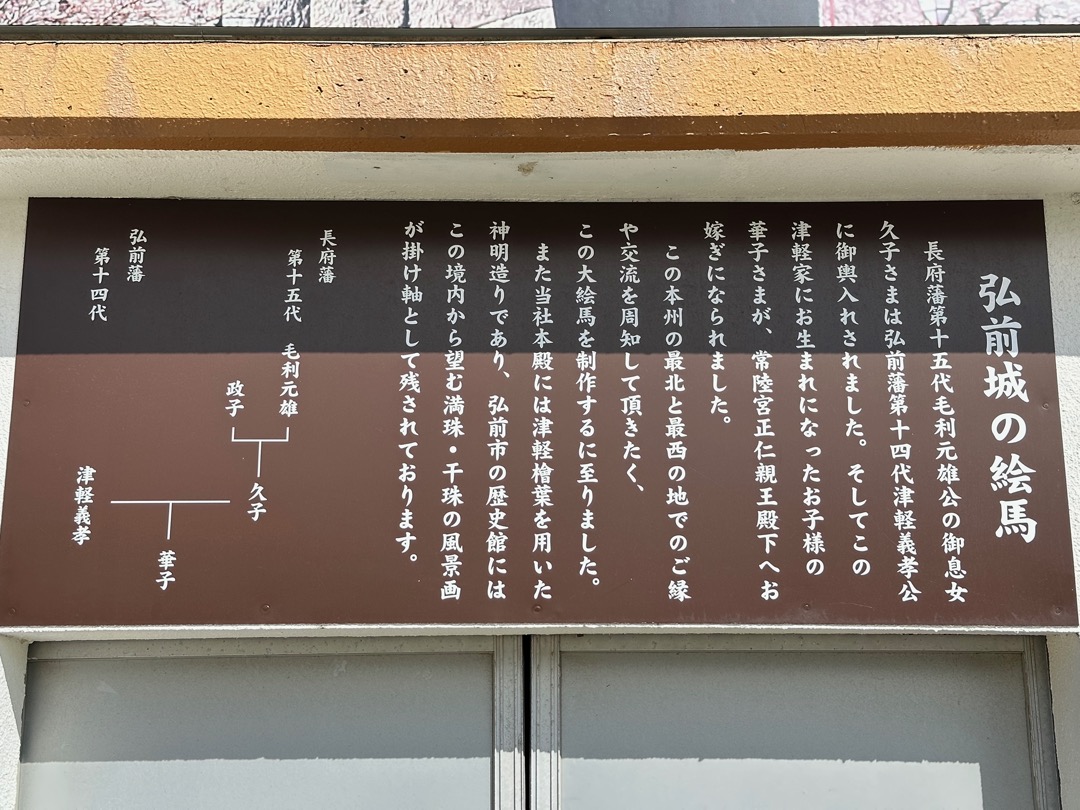 弘前城の絵馬
長府藩第十五代毛利元雄公の御息女
久子さまは弘前藩第十四代津軽義孝公
に御輿入れされました。そしてこの
津軽家にお生まれになったお子様の
華子さまが、常陸宮正仁親王殿下へお
嫁ぎになられました。
この本州の最北と最西の地でのご縁
や交流を周知して頂きたく、
この大絵馬を制作するに至りました。
また当社本殿には津軽檜葉を用いた
神明造りであり、弘前市の歴史館には
この境内から望む満珠・干珠の風景画
が掛け軸として残されております。
長府藩
第十五代 毛利元雄
政子
久子
弘前藩
第十四代
津軽義孝
華子